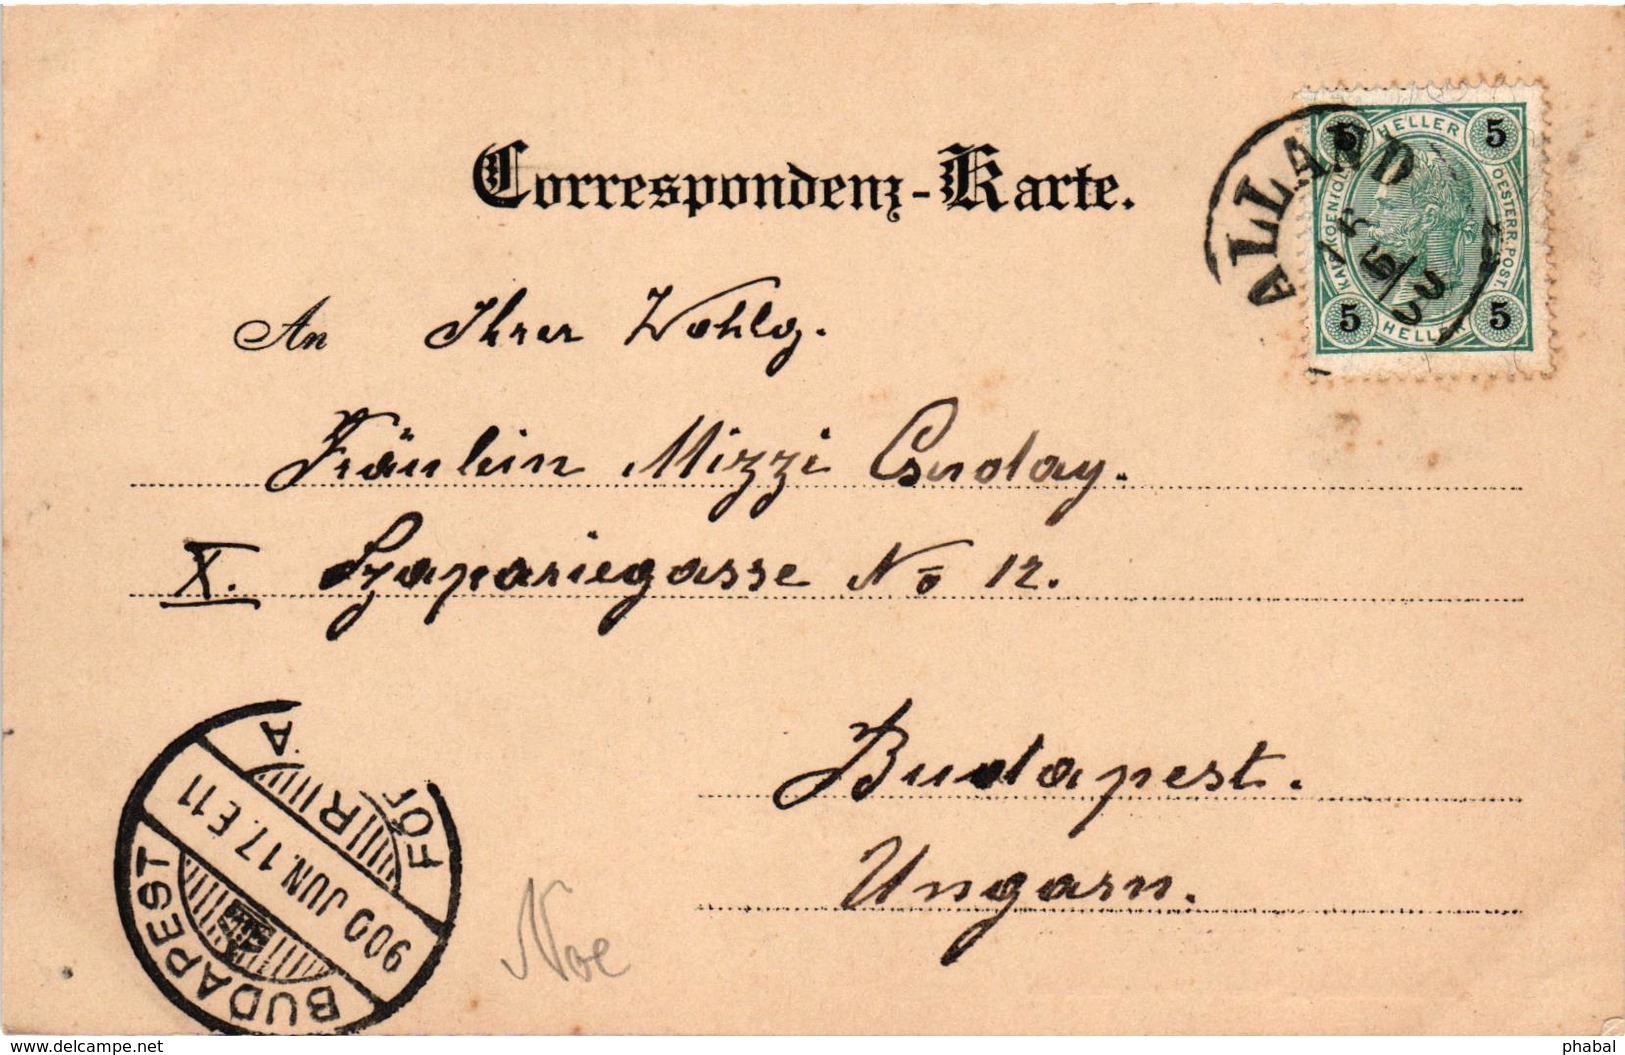 Correspondenz-Karte.
ALLAND
5 HELLER 5
KAIS. KOENIGL.
OESTERR. POST.
5 HELLER 5
An Ihrer Wohlg.
Fräulein Mizzi Csuday.
X. Szapariegasse No 12.
Budapest.
Ungarn.
BUDAPEST
900 JUN. 17. E 11
FŐ
A
Noe
www.delcampe.net
phabal